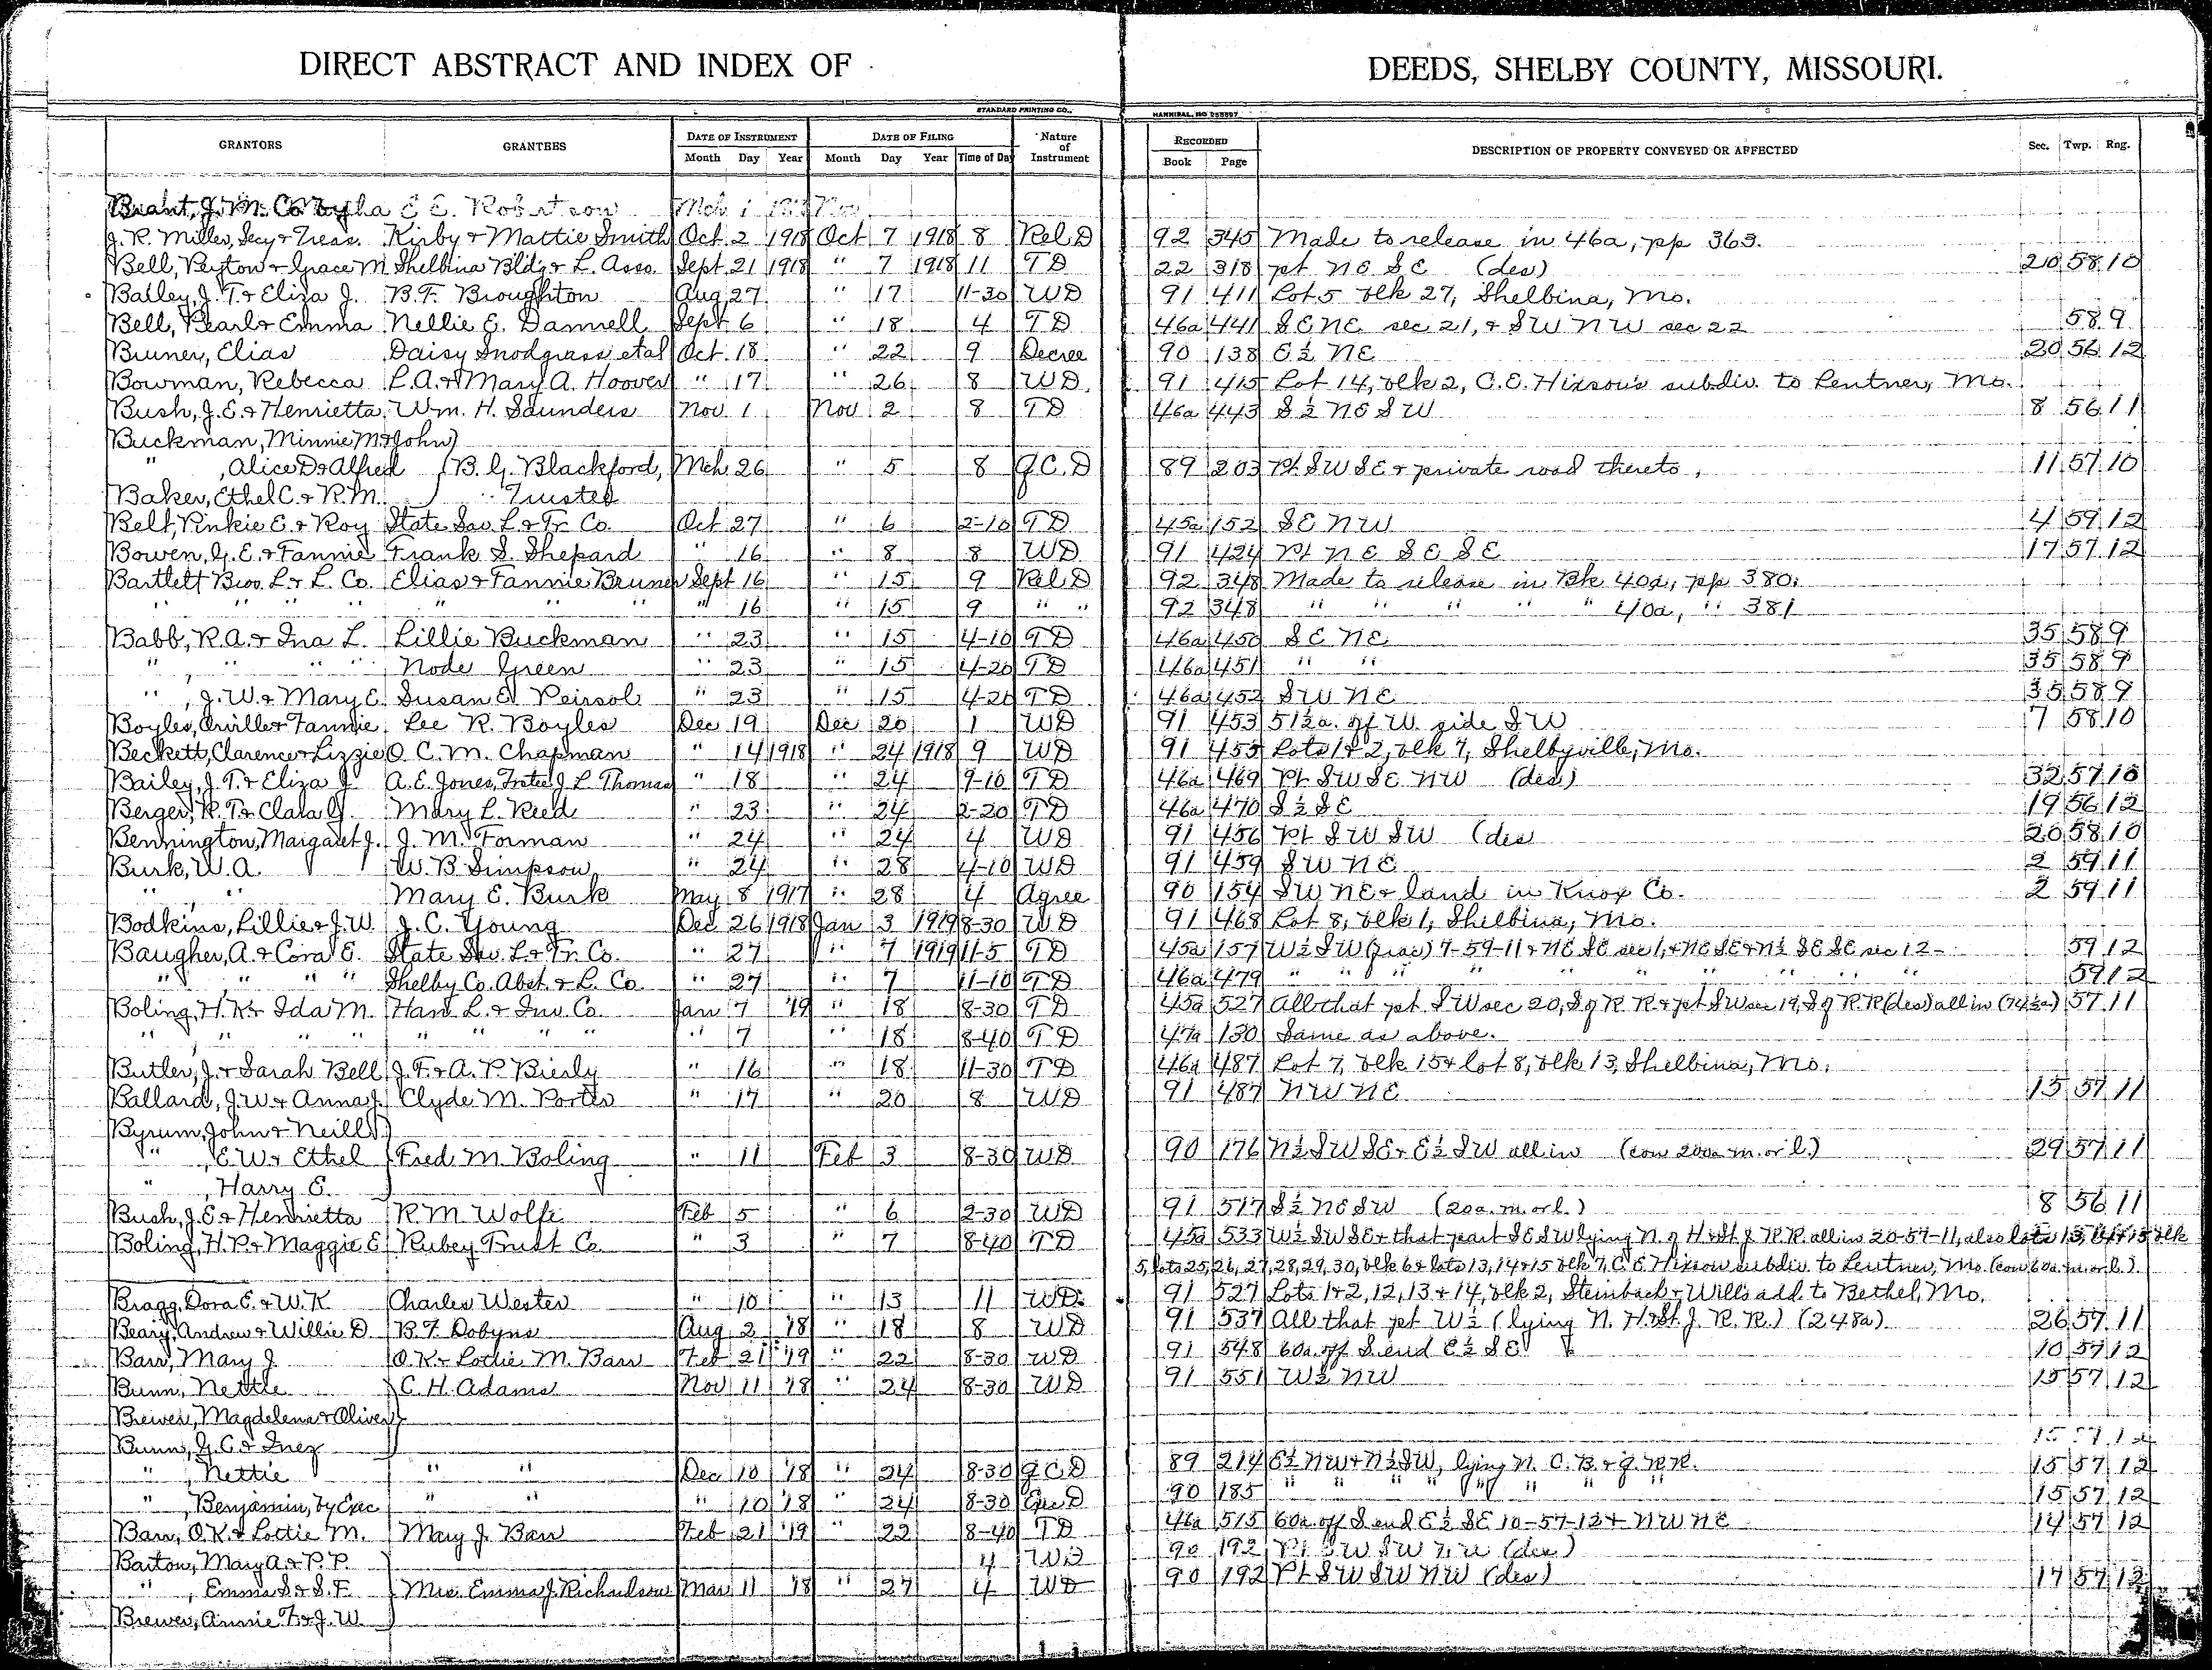 DIRECT ABSTRACT AND INDEX OF DEEDS, SHELBY COUNTY, MISSOURI.
STANDARD PRINTING CO., HANNIBAL, MO
GRANTORS GRANTEES DATE OF INSTRUMENT DATE OF FILING Nature of Instrument RECORDED DESCRIPTION OF PROPERTY CONVEYED OR AFFECTED Sec. Twp. Rng.
Month Day Year Month Day Year Time of Day Book Page
Mch 1 Nov
J. R. Miller, Secy & Treas. Kirby & Mattie Smith Oct 2 1918 Oct 7 1918 8 Rel D 92 345 Made to release in 46a, pp 363.
Bell, Peyton & Grace M Shelbina Bldg & L. Asso. Sept 21 1918 " 7 1918 11 TD 22 318 pt NE SE (des) 20 58 10
Bailey, J. T. & Eliza J. B. F. Broughton Aug 27 " 17 11-30 WD 91 411 Lot 5 blk 27, Shelbina, Mo.
Bell, Pearl & Emma Nellie E. Damrell Sept 6 " 18 4 TD 46a 441 SE NE sec 21, & SW NW sec 22 58 9
Bruner, Elias Daisy Snodgrass et al Oct 18 " 22 9 Decree 90 138 E½ NE 20 56 12
Bowman, Rebecca L. A. & Mary A. Hoover " 17 " 26 8 WD 91 415 Lot 14, blk 2, C. E. Hixson's subdiv. to Lentner, Mo.
Bush, J. E. & Henrietta Wm. H. Saunders Nov 1 Nov 2 8 TD 46a 443 S½ NE SW 8 56 11
Buckman, Minnie M & John
" , Alice D & Alfred B. G. Blackford, Mch 26 " 5 8 QCD 89 203 Pt SW SE & private road thereto, 11 57 10
Baker, Ethel C. & R. M. Trustee
Belt, Pinkie E. & Roy State Sav. L. & Tr. Co. Oct 27 " 6 2-10 TD 45a 152 SE NW 4 59 12
Bowen, G. E. & Fannie Frank S. Shepard " 16 " 8 8 WD 91 424 Pt NE SE SE 17 57 12
Bartlett Bros. L. & L. Co. Elias & Fannie Bruner Sept 16 " 15 9 Rel D 92 348 Made to release in Bk 40a, pp 380.
" " " " " " " " 16 " 15 9 " " 92 348 " " " " " 40a, " 381
Babb, R. A. & Ina L. Lillie Buckman " 23 " 15 4-10 TD 46a 450 SE NE 35 58 9
" , " " " Node Green " 23 " 15 4-20 TD 46a 451 " " 35 58 9
" , J. W. & Mary E. Susan E. Peirsol " 23 " 15 4-20 TD 46a 452 SW NE 35 58 9
Boyles, Orville & Fannie Lee R. Boyles Dec 19 Dec 20 1 WD 91 453 51½a. off W. side SW 7 58 10
Beckett, Clarence & Lizzie O. C. M. Chapman " 14 1918 " 24 1918 9 WD 91 455 Lots 1 & 2, blk 7, Shelbyville, Mo.
Bailey, J. T. & Eliza J A. E. Jones, Trstee J. L. Thomas " 18 " 24 9-10 TD 46a 469 Pt SW SE NW (des) 32 57 10
Berger, R. T. & Clara G. Mary L. Reed " 23 " 24 2-20 TD 46a 470 S½ SE 19 56 12
Bennington, Margaret J. J. M. Forman " 24 " 24 4 WD 91 456 Pt SW SW (des 20 58 10
Burk, W. A. W. B Simpson " 24 " 28 4-10 WD 91 459 SW NE 2 59 11
" , " Mary E. Burk May 8 1917 " 28 4 Agree 90 154 SW NE & land in Knox Co. 2 59 11
Bodkins, Lillie & J. W. J. C. Young Dec 26 1918 Jan 3 1919 8-30 WD 91 468 Lot 8, blk 1, Shelbina, Mo.
Baugher, A. & Cora E. State Sav. L. & Tr. Co. " 27 " 7 1919 11-5 TD 45a 157 W½ SW (frac) 7-59-11 & NE SE sec 1, & NE SE & N½ SE SE sec 12- 59 12
" , " " " Shelby Co. Abst. & L. Co. " 27 " 7 11-10 TD 46a 479 " " " " " " " " " 59 12
Boling, H. K. & Ida M. Han. L. & Inv. Co. Jan 7 '19 " 18 8-30 TD 45a 527 All that pt SW sec 20, S of R R & pt SW sec 19, S of R R (des) all in (74½a) 57 11
" " " " " " " " " 7 " 18 8-40 TD 47a 130 Same as above.
Butler, J. & Sarah Bell J. F. & A. P. Bierly " 16 " 18 11-30 TD 46a 487 Lot 7, blk 15 & lot 8, blk 13, Shelbina, Mo.
Ballard, J. W. & Anna J. Clyde M. Porter " 17 " 20 8 WD 91 487 NW NE 15 57 11
Byrum, John & Neill
" , E. W. & Ethel Fred M. Boling " 11 Feb 3 8-30 WD 90 176 N½ SW SE & E½ SW all in (con 200a m. or l.) 29 57 11
" , Harry E.
Bush, J. E. & Henrietta R. M. Wolfe Feb 5 " 6 2-30 WD 91 517 S½ NE SW (20a. m. or l.) 8 56 11
Boling, H. P. & Maggie E Rubey Trust Co. " 3 " 7 8-40 TD 45a 533 W½ SW SE & that part SE SW lying N. of H & St J R. R. all in 20-57-11, also lots 13, 14 & 15 blk
5, lots 25, 26, 27, 28, 29, 30, blk 6 & lots 13, 14 & 15 blk 7, C. E. Hixson subdiv. to Lentner, Mo. (con 60a. m. or l.)
Bragg, Dora E. & W. K Charles Wester " 10 " 13 11 WD 91 527 Lots 1 & 2, 12, 13 & 14, blk 2, Steinbach & Wills add. to Bethel, Mo.
Beary, Andrew & Willie D. B. F. Dobyns Aug 2 '18 " 18 8 WD 91 537 All that pt W½ (lying N. H. & St. J. R. R.) (248a) 26 57 11
Barr, Mary J. O. K. & Lottie M. Barr Feb 21 '19 " 22 8-30 WD 91 548 60a. off S. end E½ SE 10 57 12
Bunn, Nettie C. H. Adams Nov 11 '18 " 24 8-30 WD 91 551 W½ NW 15 57 12
Brewer, Magdelena & Oliver
Bunn, G. C. & Inez 15 57 12
" , Nettie " " Dec 10 '18 " 24 8-30 QCD 89 214 E½ NW & N½ SW, lying N. C. B. & Q. RR. 15 57 12
" , Benjamin, by Exec " " " 10 '18 " 24 8-30 Exec D 90 185 " " " " " " " 15 57 12
Barr, O. K. & Lottie M. Mary J. Barr Feb 21 '19 " 22 8-40 TD 46a 515 60a. off S end E½ SE 10-57-12 & NW NE 14 57 12
Barton, Mary A. & P. P. 4 WD 90 192 Pt SW SW NW (des)
" , Emma S. & S. F. Mrs. Emma J. Richardson Mar 11 '18 " 27 4 WD 90 192 Pt SW SW NW (des) 17 57 12
Brewer, Annie F. & J. W.